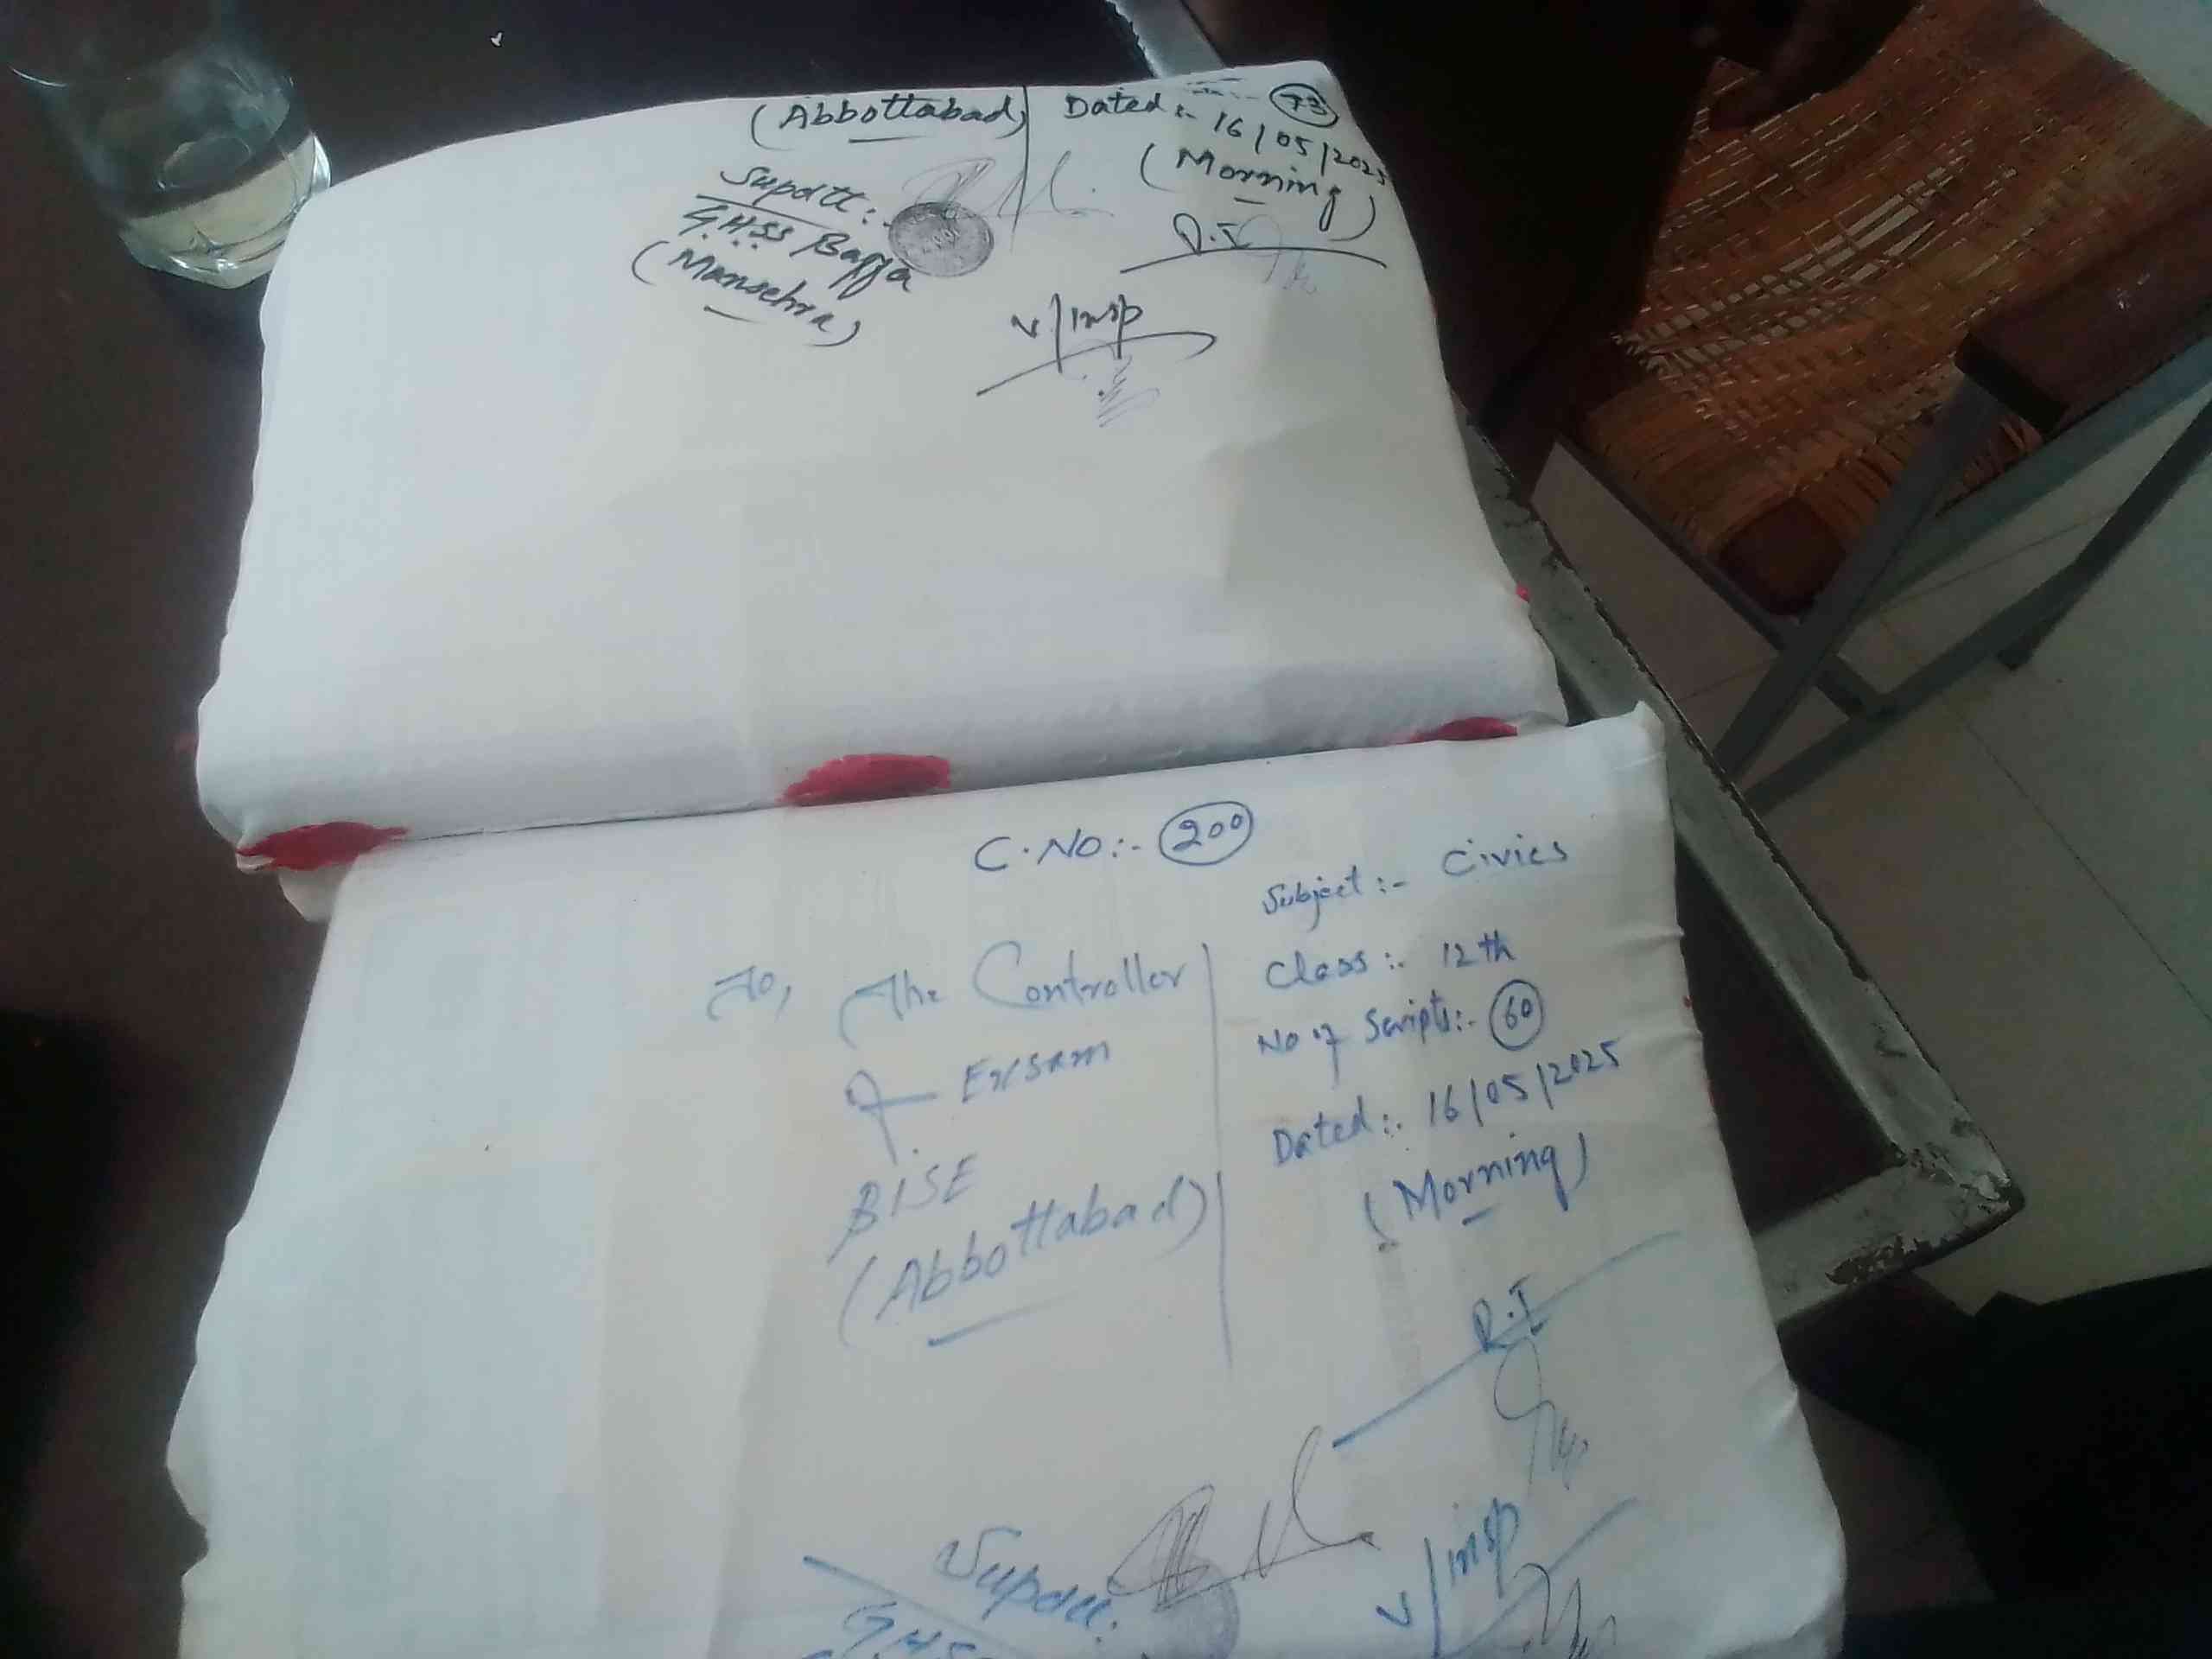 (Abbottabad)
Supdtt:-
G.H.SS Baffa
(Mansehra)
73
Dated:- 16/05/2025
(Morning)
R.I
V/insp
C.No:- 200
To, The Controller
of Exsam
BISE
(Abbottabad)
Subject:- Civics
Class:- 12th
No of Scripts:- 60
Dated:- 16/05/2025
(Morning)
R.I
Supdtt:
V/insp